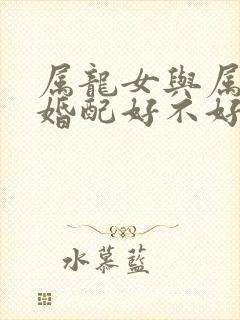 属龍女與属
婚配好不好
水慕藍